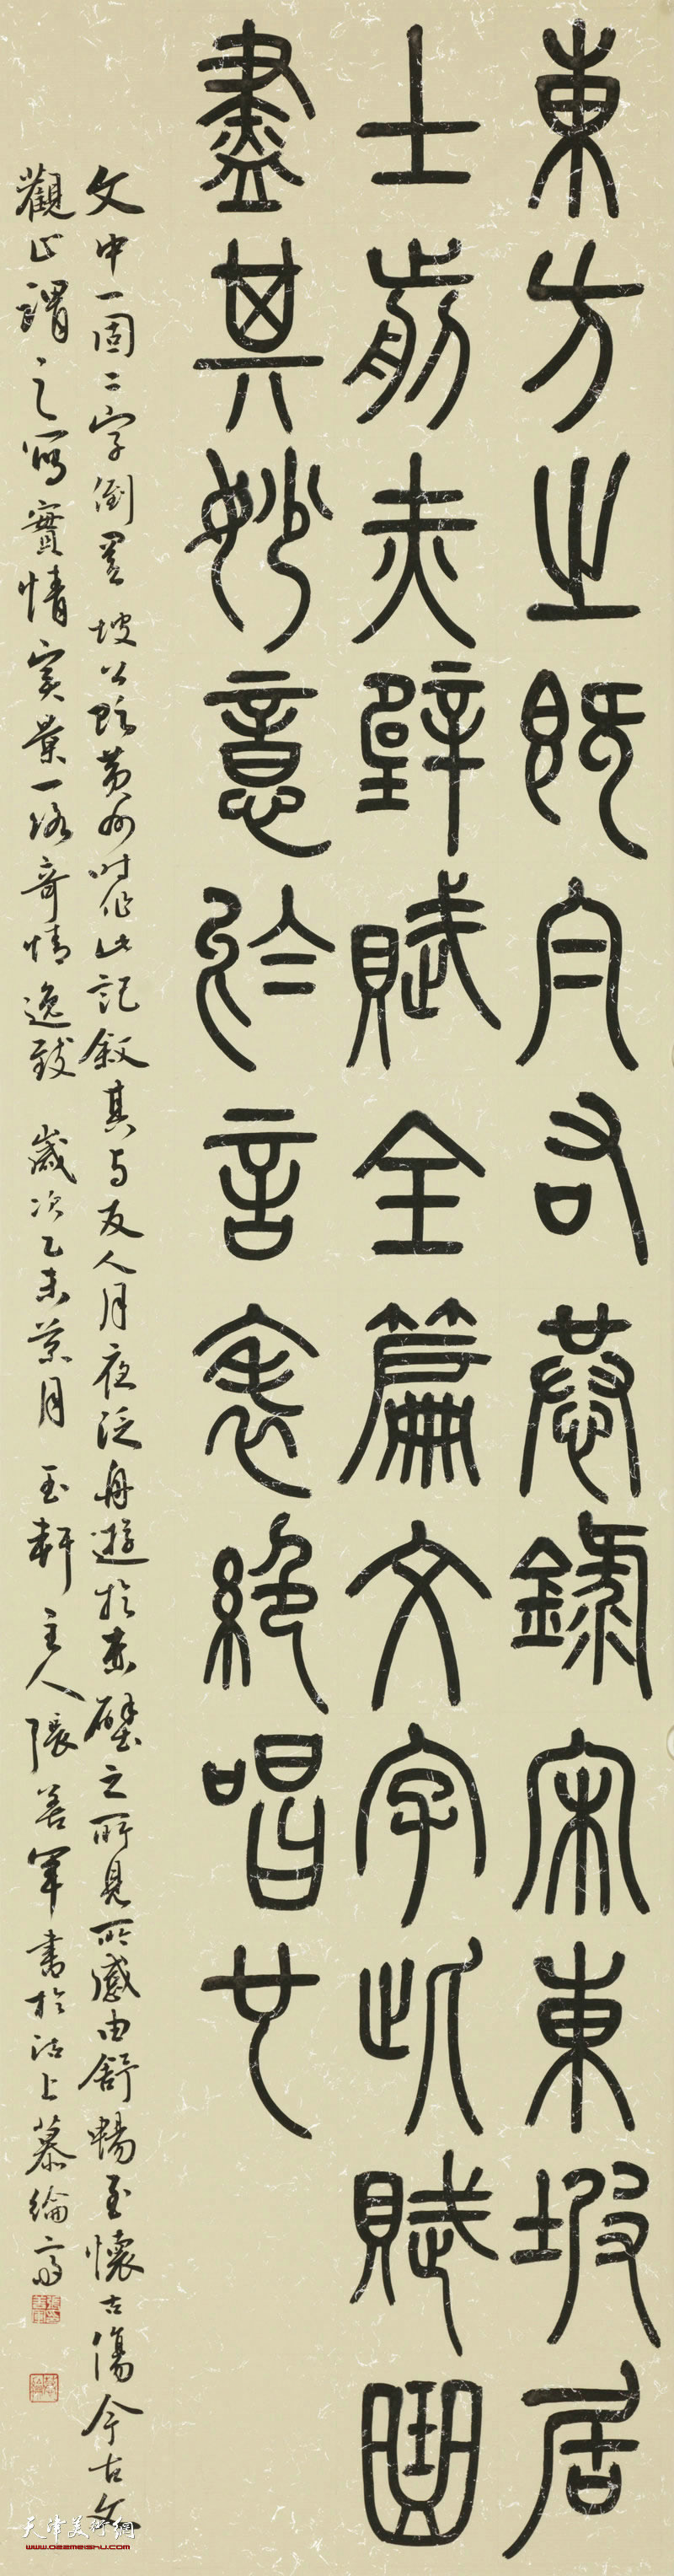 東方之既白右恭錄宋東坡居
士前赤壁賦全篇文字此賦固
盡其妙意於言表絕唱也
文中一固二字倒置坡公貶黃州時作此記敘其與友人月夜泛舟遊於赤壁之所見所感由舒暢至懷古傷今古文
觀止謂之寫實情實景一派奇情逸致 歲次乙未荷月 玉軒主人張善軍書於沽上慕綸齋
天津美術網
www.022meishu.com